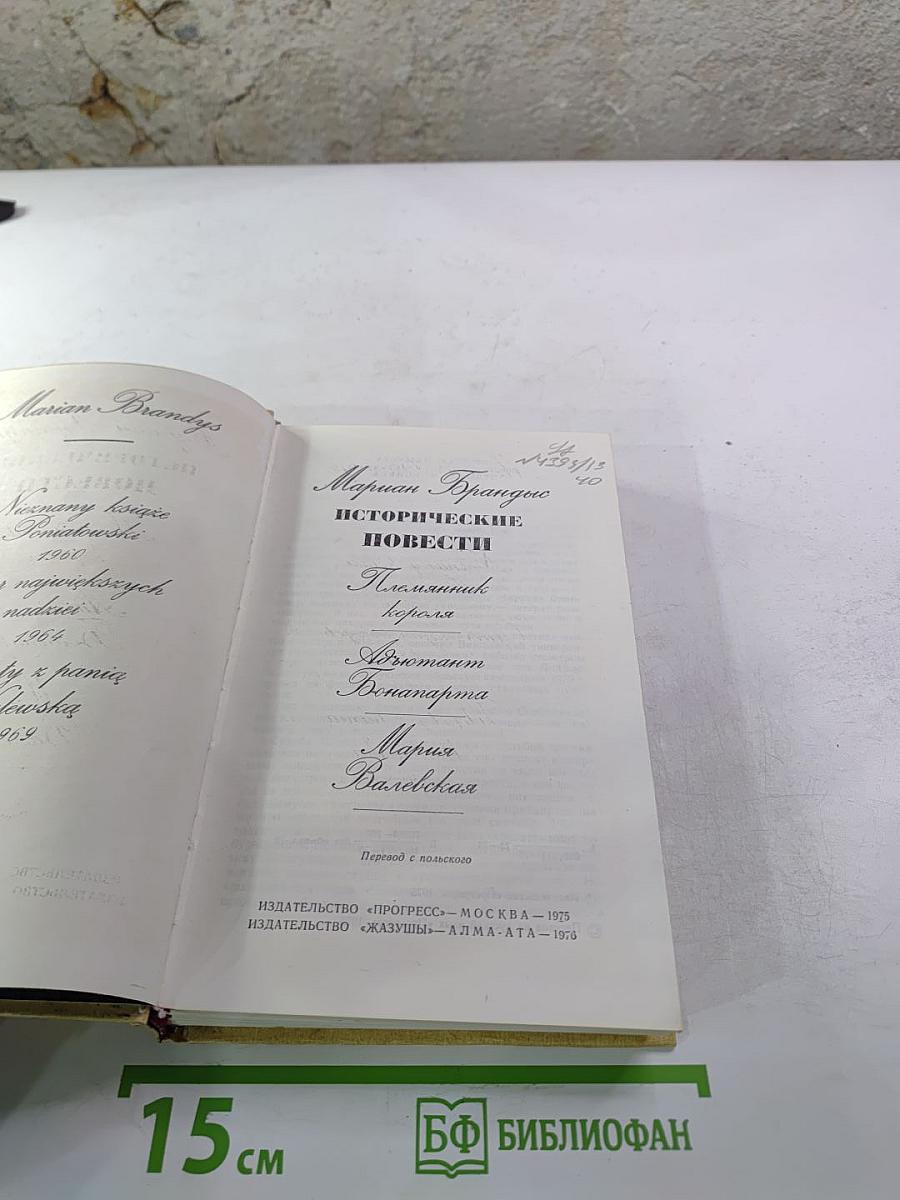 Marian Brandys
Nieznany książe
Poniatowski
1960
największych
nadziei
1964
z panią
1969
Мариан Брандыс
ИСТОРИЧЕСКИЕ
ПОВЕСТИ
Племянник
короля
Адъютант
Бонапарта
Мария
Валевская
Перевод с польского
ИЗДАТЕЛЬСТВО «ПРОГРЕСС»—МОСКВА—1975
ИЗДАТЕЛЬСТВО «ЖАЗУШЫ»—АЛМА-АТА—1976
15 см
БФ БИБЛИОФАН